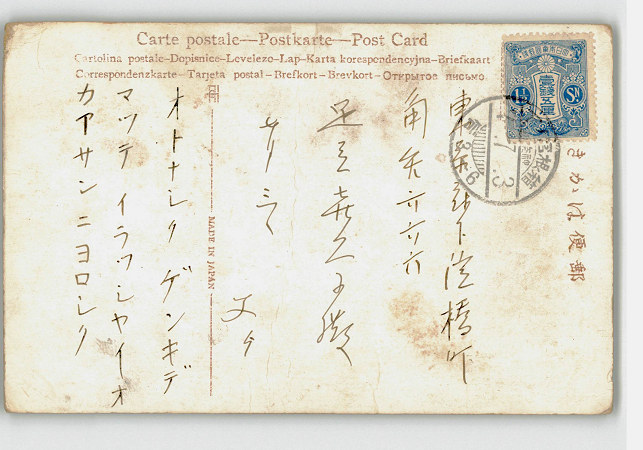 Carte postale—Postkarte—Post Card
Cartolina postale-Dopisnice-Levelezo-Lap-Karta korespondencyjna-Briefkaart
Correspondenzkarte-Tarjeta postal-Brefkort-Brevkort-Открытое письмо
郵便はかき
壹錢五厘
1½ SN
箱根
東京
下淀橋町
角筈六六六
足立
殿
ヨリ
MADE IN JAPAN
オトナシク ゲンキデ
マツテ イラツシヤイ オ
カアサンニヨロシク